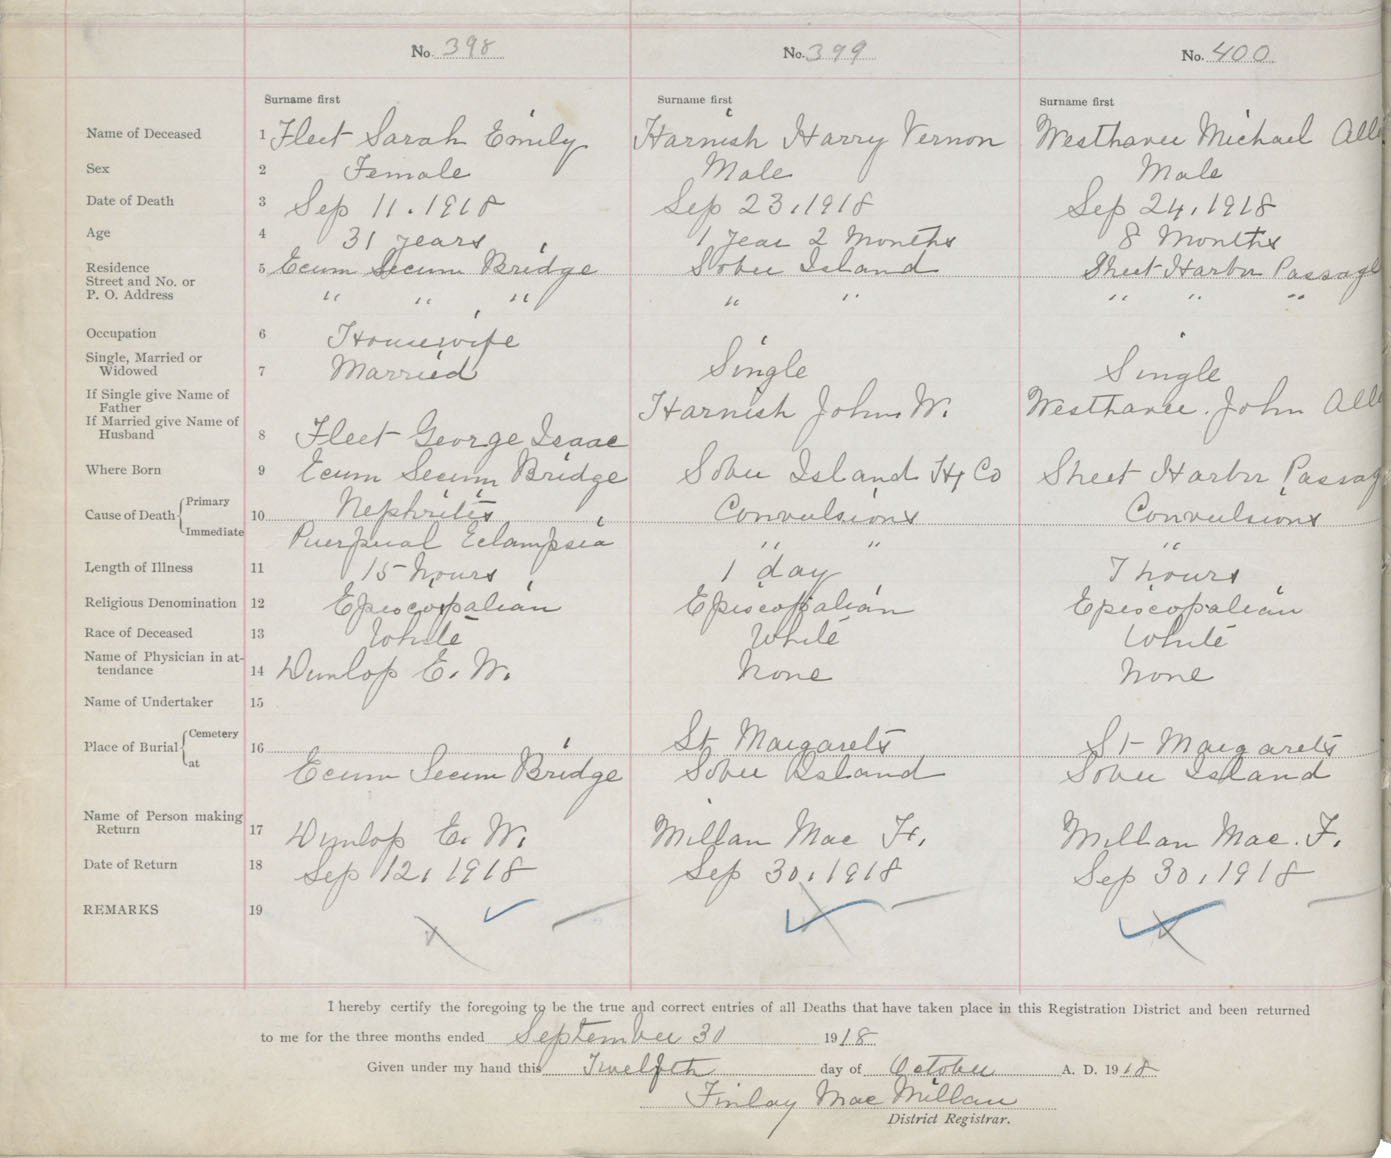 No. 398 No. 399 No. 400
Surname first Surname first Surname first
Name of Deceased 1 Fleet Sarah Emily Harnish Harry Vernon Westhaver Michael
Sex 2 Female Male Male
Date of Death 3 Sep 11. 1918 Sep 23, 1918 Sep 24, 1918
Age 4 31 years 1 year 2 Months 8 Months
Residence 5 Ecum Secum Bridge Sober Island Sheet Harbor Passage
Street and No. or
P. O. Address " " " " " " " "
Occupation 6 Housewife
Single, Married or
Widowed 7 Married Single Single
If Single give Name of
Father Harnish John W. Westhaver. John
If Married give Name of
Husband 8 Fleet George Isaac
Where Born 9 Ecum Secum Bridge Sober Island Hx Co Sheet Harbor Passag
Cause of Death Primary 10 Nephritis Convulsions Convulsions
Immediate Puerperal Eclampsia " " "
Length of Illness 11 15 hours 1 day 7 hours
Religious Denomination 12 Episcopalian Episcopalian Episcopalian
Race of Deceased 13 White White White
Name of Physician in at-
tendance 14 Dunlop E. W. None None
Name of Undertaker 15
Place of Burial Cemetery 16 St Margarets St Margarets
at Ecum Secum Bridge Sober Island Sober Island
Name of Person making
Return 17 Dunlop E. W. Millan Mac F. Millan Mac. F.
Date of Return 18 Sep 12, 1918 Sep 30, 1918 Sep 30, 1918
REMARKS 19
I hereby certify the foregoing to be the true and correct entries of all Deaths that have taken place in this Registration District and been returned
to me for the three months ended September 30 1918
Given under my hand this Twelfth day of October A. D. 1918
Finlay Mac Millan
District Registrar.